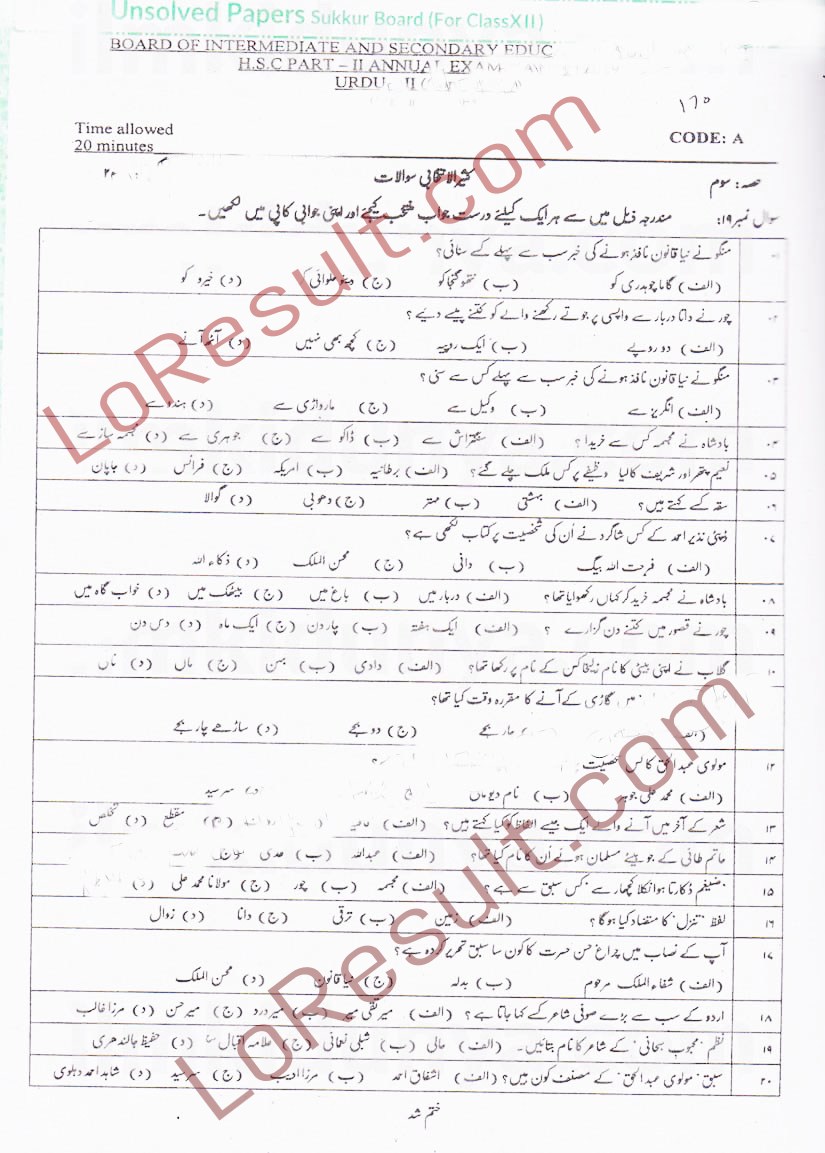 Unsolved Papers Sukkur Board (For ClassXII)
BOARD OF INTERMEDIATE AND SECONDARY EDUC
H.S.C PART – II ANNUAL EXAM
URDU II
۱۷۰
Time allowed
20 minutes
CODE: A
حصہ: سوم کثیرالانتخابی سوالات
سوال نمبر۱۹: مندرجہ ذیل میں سے ہر ایک کیلئے درست جواب منتخب کیجئے اور اپنی جوابی کاپی میں لکھیں۔
۰۱ منگو نے نیا قانون نافذ ہونے کی خبر سب سے پہلے کسے سنائی؟
(الف) گاما چوہدری کو (ب) نتھو گنجا کو (ج) دینو حلوائی کو (د) خیرو کو
۰۲ چور نے داتا دربار سے واپسی پر جوتے رکھنے والے کو کتنے پیسے دیئے؟
(الف) دو روپے (ب) ایک روپیہ (ج) کچھ بھی نہیں (د) آٹھ آنے
۰۳ منگو نے نیا قانون نافذ ہونے کی خبر سب سے پہلے کس سے سنی؟
(الف) انگریز سے (ب) وکیل سے (ج) مارواڑی سے (د) ہندو سے
۰۴ بادشاہ نے مجسمہ کس سے خریدا؟ (الف) سنگتراش سے (ب) ڈاکو سے (ج) جوہری سے (د) مجسمہ ساز سے
۰۵ نعیم پتھر اور شریف کالیا وظیفے پر کس ملک چلے گئے؟ (الف) برطانیہ (ب) امریکہ (ج) فرانس (د) جاپان
۰۶ سقہ کسے کہتے ہیں؟ (الف) بہشتی (ب) مہتر (ج) دھوبی (د) گوالا
۰۷ ڈپٹی نذیر احمد کے کس شاگرد نے اُن کی شخصیت پر کتاب لکھی ہے؟
(الف) فرحت اللہ بیگ (ب) دانی (ج) محسن الملک (د) ذکاء اللہ
۰۸ بادشاہ نے مجسمہ خرید کر کہاں رکھوایا تھا؟ (الف) دربار میں (ب) باغ میں (ج) بیٹھک میں (د) خواب گاہ میں
۰۹ چور نے قصور میں کتنے دن گزارے؟ (الف) ایک ہفتہ (ب) چار دن (ج) ایک ماہ (د) دس دن
۱۰ گلاب نے اپنی بیٹی کا نام زلیخا کس کے نام پر رکھا تھا؟ (الف) دادی (ب) بہن (ج) ماں (د) ناں
میں گاڑی کے آنے کا مقررہ وقت کیا تھا؟
(الف) چار بجے (ج) دو بجے (د) ساڑھے چار بجے
۱۲ مولوی عبدالحق کا لس شخصیت
(الف) محمد علی جوہر (ب) نام دیو مالی (د) سرسید
۱۳ شعر کے آخر میں آنے والے ایک جیسے الفاظ کو کیا کہتے ہیں؟ (الف) (ج) مقطع (د) تخلص
۱۴ حاتم طائی کے جو بیٹے مسلمان ہوئے اُن کا نام کیا تھا؟ (الف) عبداللہ (ب) عدی
۱۵ "ضیغم ڈکارتا ہوا نکلا کچھار سے" کس سبق سے ہے؟ (الف) مجسمہ (ب) چور (ج) مولانا محمد علی (د)
۱۶ لفظ "تنزل" کا متضاد کیا ہوگا؟ (الف) زمین (ب) ترقی (ج) دانا (د) زوال
۱۷ آپ کے نصاب میں چراغ حسن حسرت کا کون سا سبق تحریر کردہ ہے؟
(الف) شفاء الملک مرحوم (ب) بدلہ (ج) نیا قانون (د) محسن الملک
۱۸ اردو کے سب سے بڑے صوفی شاعر کسے کہا جاتا ہے؟ (الف) میر تقی میر (ب) میر درد (ج) میر حسن (د) مرزا غالب
۱۹ نظم "محبوب سبحانی" کے شاعر کا نام بتائیں۔ (الف) حالی (ب) شبلی نعمانی (ج) علامہ اقبال (د) حفیظ جالندھری
۲۰ سبق "مولوی عبدالحق" کے مصنف کون ہیں؟ (الف) اشفاق احمد (ب) مرزا ادیب (ج) سرسید (د) شاہد احمد دہلوی
ختم شد
LoResult.com
LoResult.com